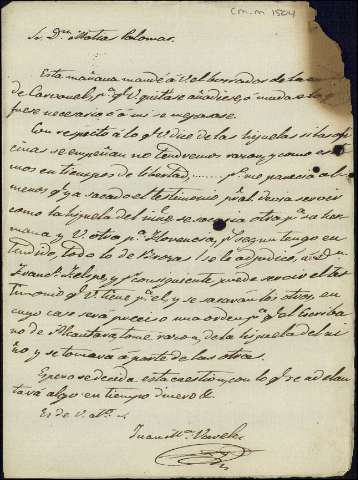 CM.m 1504
Sr. Dn. Matias Palomar.
Esta mañana mandé á V. el borrador de la
de Carvanel, pa. qe. V. quitase añadiese, ó mudase lo qe.
fuese necesario ó á mi se me pasase.
Con respecto á lo qe. V. dice de las hijuelas si las ofi-
cinas se empeñan no tendremos razon, y como esta-
mos en tiempos de libertad....... pr. me parecia al
menos qe. ya sacado el testimonio pr. el
como la hijuela del niño se otra pa. su her-
mana y V. otra pa. pr. segun tengo en-
tendido, todo lo de se lo adjudico á Dn.
Franco. Felipe, y pr. consiguiente puede servir el tes-
timonio qe. V. tiene pa. el, y se sacarán los otros, en
cuyo caso será preciso una orden pa. qe. el Escriba-
no de Alcantara tome razon de la hijuela del ni-
ño y se tomará á parte de las otras.
Espero se decida esta cuestion, con lo qe. se adelan-
tará algo en tiempo y dinero &
Es de V. afmo.
Juan Ma.